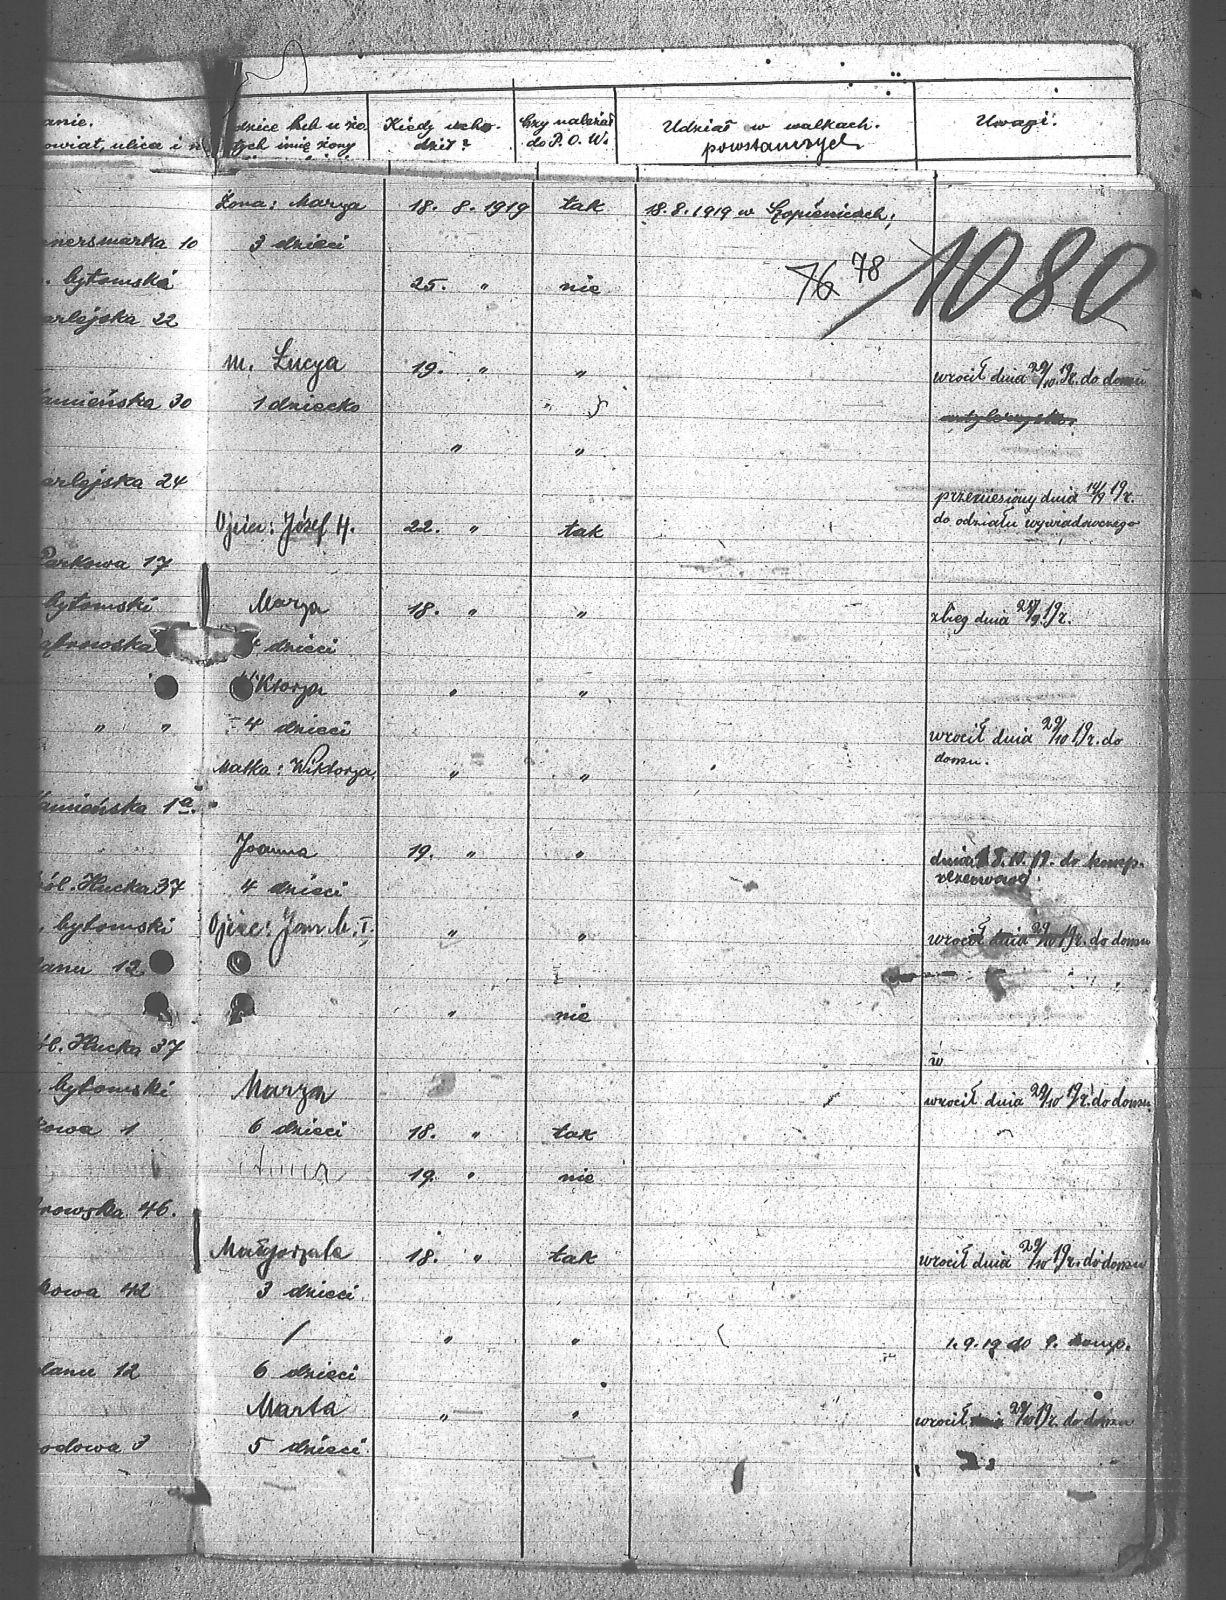 anie.
owiat, ulica i n
dzice lub u żo
tych imię żony
Kiedy ucho-
dził?
Czy należał
do P.O.W.
Udział w walkach
powstańczych
Uwagi:
Żona: Marya 18. 8. 1919 tak 18.8.1919 w Szopienicach,
nersmarka 10 3 dzieci
76 78 / 1080
. bytomská 25. " nie
arlejska 22
m. Łucya 19. " " wrócił dnia 29/10. 19r. do domu
amieńska 30 1 dziecko "
" "
arlejska 24 przeniesiony dnia 14/9 19r.
Ojciec: Józef H. 22. " tak do odziału wywiadowczego
Parkowa 17
bytomski Marya 18. " " zbieg dnia 28/9. 19r.
dzieci
Wiktorya " "
" " 4 dzieci wrócił dnia 29/10 19r. do
Matka: Wiktorya " " domu.
amieńska 1a.
Joanna 19. " " do komp.
ól. Hucka 37 4 dzieci rezerwowej.
. bytomski Ojciec: Jan " " wrócił dnia 29/10 19r. do domu
lanu 12 " "
" nie
ól. Hucka 37
. bytomski Marya wrócił dnia 29/10 19r. do domu
kowa 1 6 dzieci 18. " tak
19. " nie
rowska 46.
Małgorzata 18. " tak wrócił dnia 29/10 19r. do domu
kowa 42 3 dzieci
/ " " 1.9.19 do 9. komp.
lanu 12 6 dzieci
Marta " " wrócił dnia 29/10 19r. do domu
odowa 3 5 dzieci